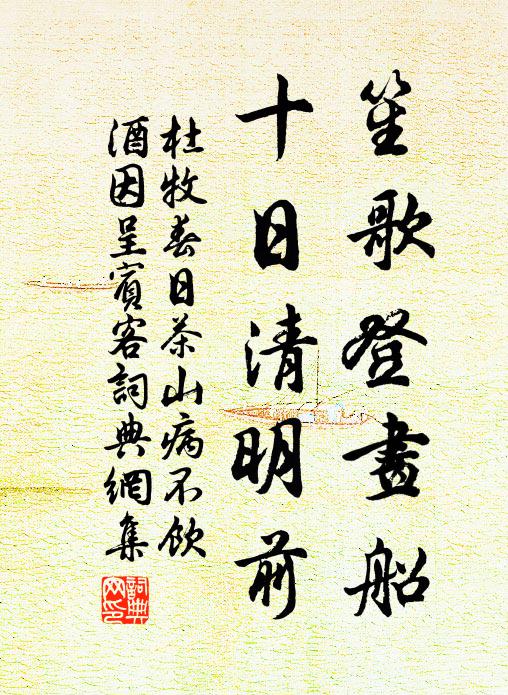 笙歌登畫船
十日清明前
杜牧春日茶山病不飲
酒因呈賓客詞典網集
詞典
網印